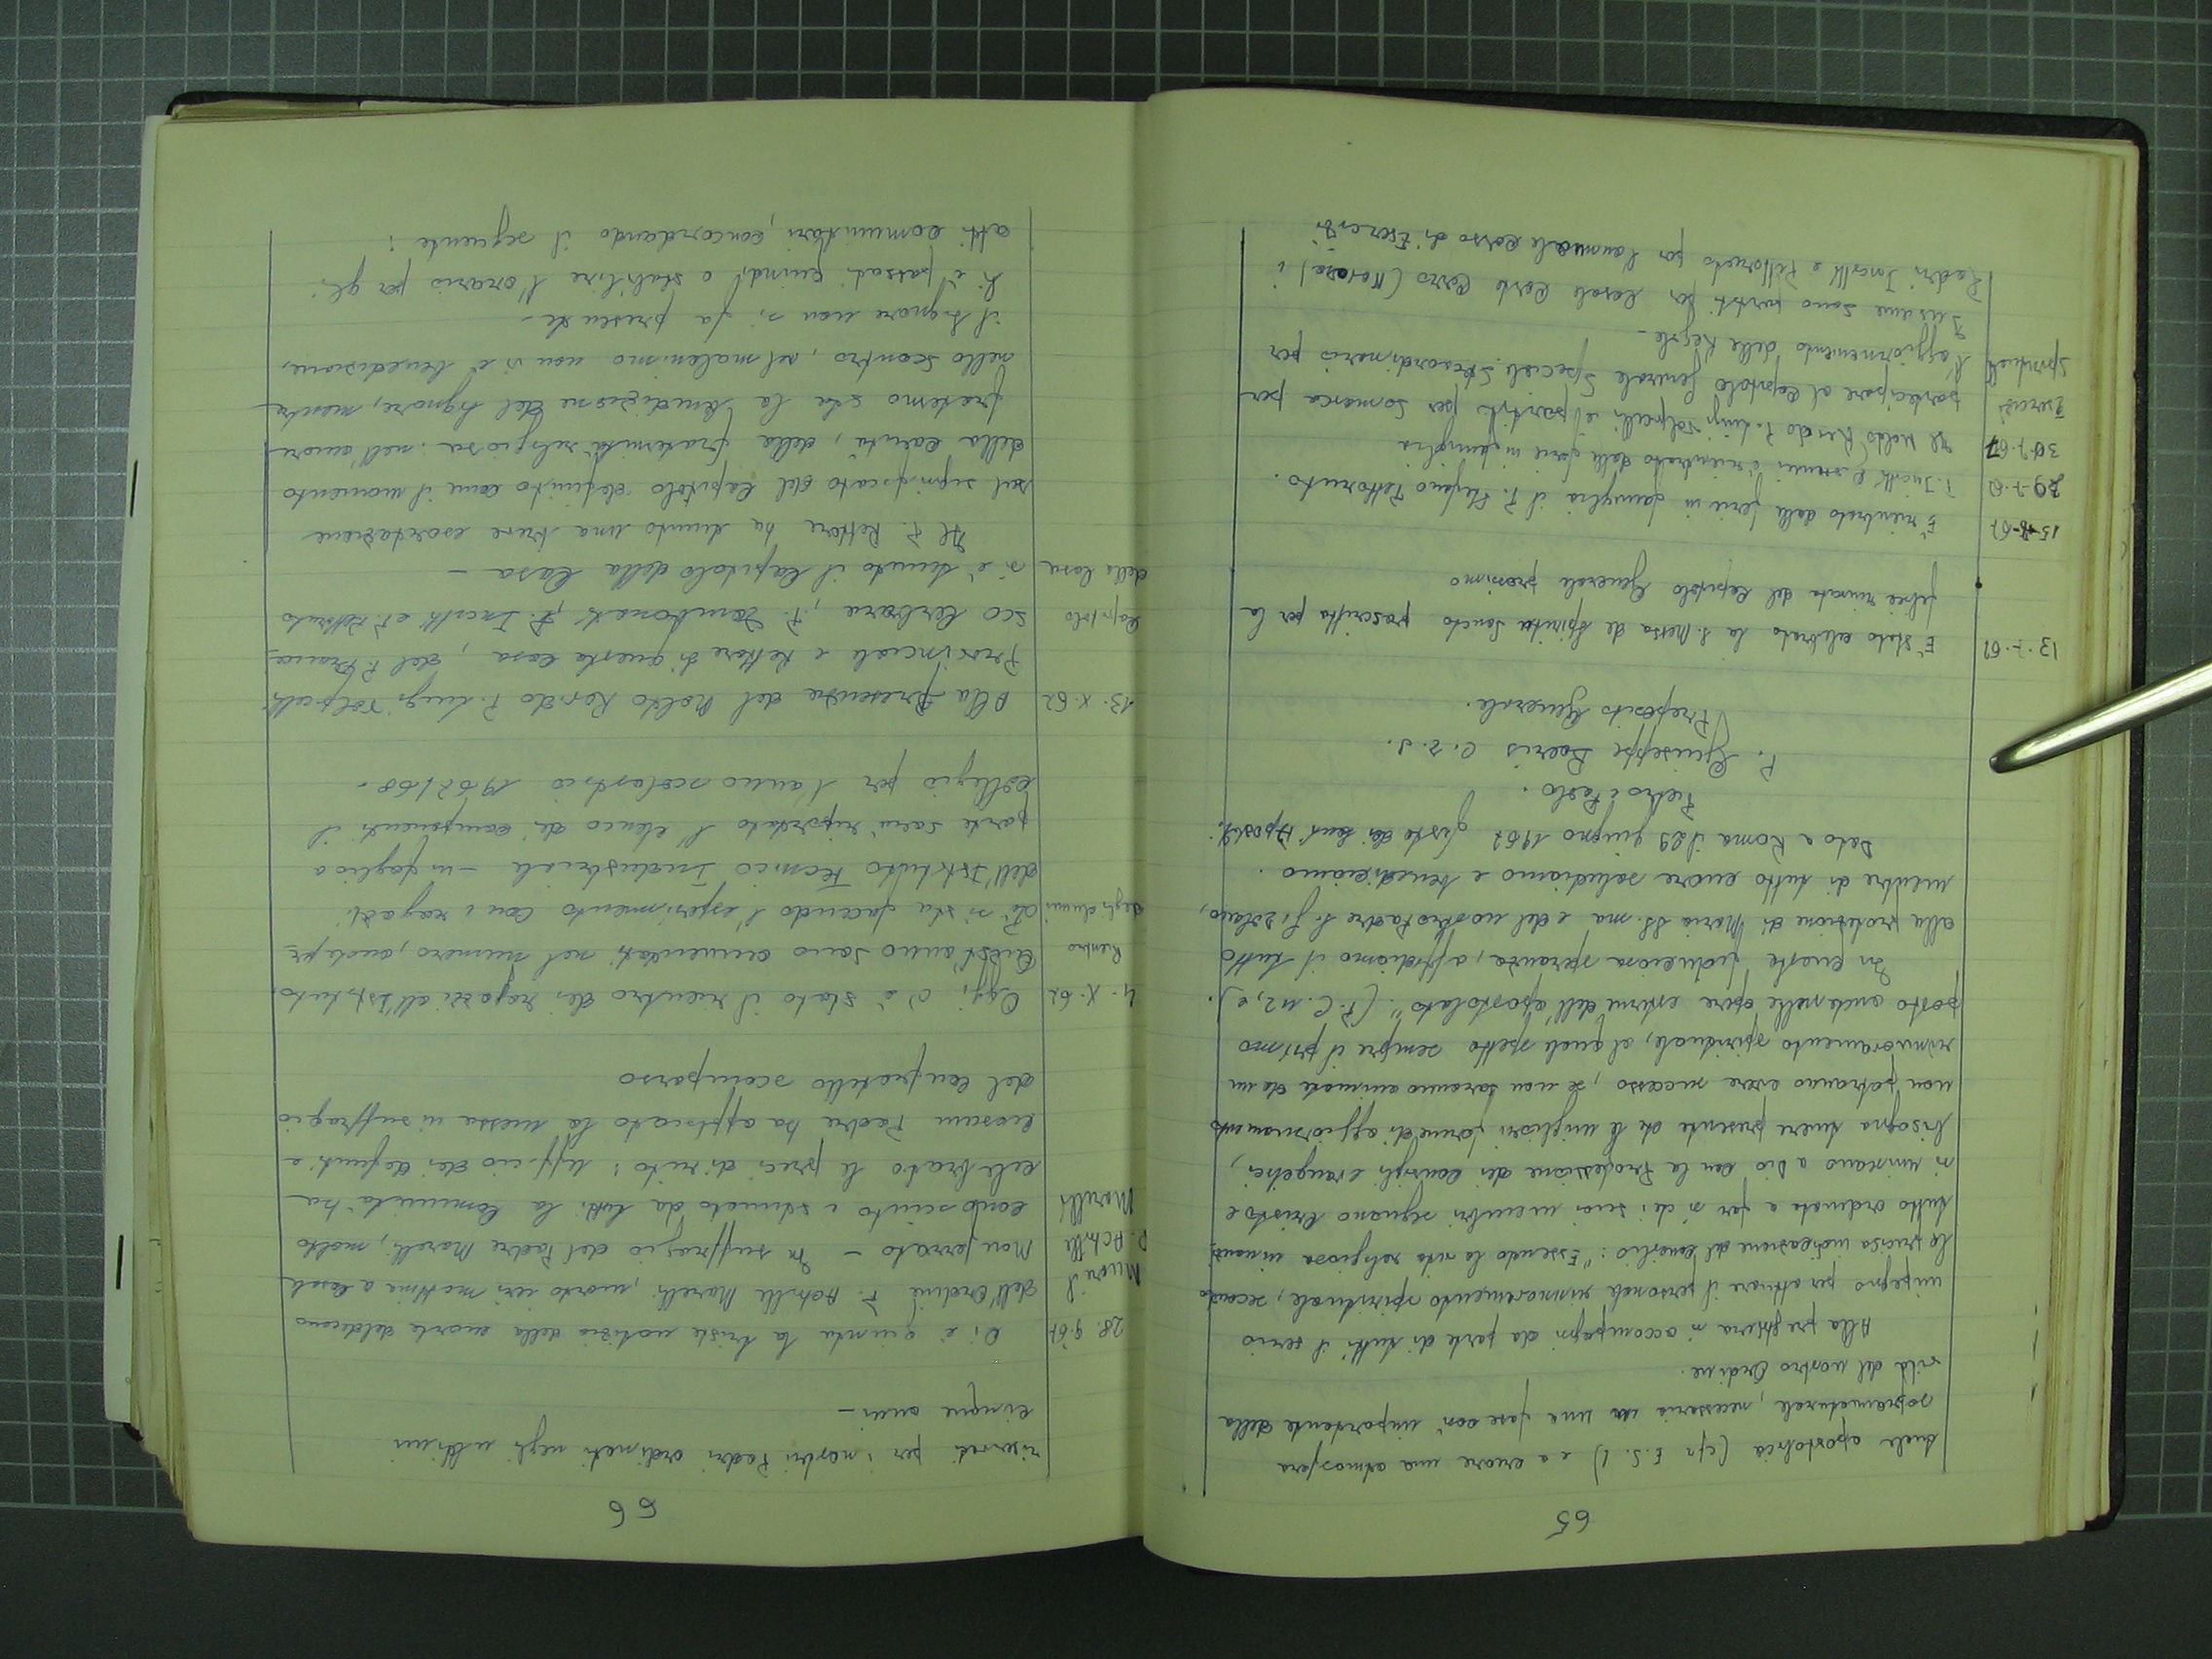 65
duale apostolica (cfr E.S. 1) e a creare una atmosfera
sopranaturale, necessaria in una fase così importante della
vita del nostro Ordine.
Alla preghiera si accompagni da parte di tutti il serio
impegno per attuare il personale rinnovamento spirituale, secondo
la precisa indicazione del Concilio: "Essendo la vita religiosa innanzi
tutto ordinata a far sì che i suoi membri seguano Cristo e
si uniscano a Dio con la Professione dei consigli evangelici,
bisogna tenere presente che le migliori forme di aggiornamento
non potranno avere successo, se non saranno animate da un
rinnovamento spirituale, al quale spetta sempre il primo
posto anche nelle opere esterne dell'apostolato". (P.C. n2, e).
In questa fiduciosa speranza, affidiamo il tutto
alla protezione di Maria SS.ma e del nostro Padre S. Girolamo,
mentre di tutto cuore salutiamo e benediciamo.
Dato a Roma il 29 giugno 1967 festa dei Santi Apostoli
Pietro e Paolo.
P. Giuseppe Boeris C.R.S.
Preposito Generale.
13.7.67 E' stata celebrata la S. Messa de Spiritu Sancto prescritta per la
felice riuscita del Capitolo Generale prossimo
15-8-67 E' rientrato dalle ferie in famiglia il P. Stefano Pettoruto.
29-7-67 P. Incitti è rientrato dalle ferie in famiglia
30.7.67 Il Molto Rev.do P. Luigi Volpicelli è partito per Somasca per
Esercizi partecipare al Capitolo Generale Speciale Straordinario per
spirituali l'aggiornamento delle Regole -
Insieme sono partiti per Casale Corte Cerro (Novara) i
Padri Incitti e Pettoruto per l'annuale corso di Esercizi
66
riservati per i nostri Padri ordinati negli ultimi
cinque anni -
28.9.67 Ci è giunta la triste notizia della morte del decano
Muore il dell'Ordine P. Achille Marelli, morto ieri mattina a Casale
P. Achille Monferrato - In suffragio del Padre Marelli, molto
Marelli conosciuto e stimato da tutti la Comunità ha
celebrato le preci di rito: Ufficio dei defunti e
ciascun Padre ha applicato la messa in suffragio
del Confratello scomparso
4-X-67 Oggi c'è stato il rientro dei ragazzi all'Istituto.
Rientro Quest'anno sono aumentati nel numero, anche per
degli alunni chè si sta facendo l'esperimento con i ragazzi
dell'Istituto Tecnico Industriale - in foglio a
parte sarà riportato l'elenco dei componenti il
Collegio per l'anno scolastico 1967/68.
13.X.67 Alla presenza del Molto Rev.do P. Luigi Volpicelli
Provinciale e Rettore di questa Casa, del P. France
Capitolo sco Cerbara, P. Zambonati, P. Incitti e P. Pettoruto
della Casa si è tenuto il Capitolo della Casa -
Il P. Rettore ha tenuto una breve esortazione
sul significato del Capitolo definito come il momento
della carità, della fraternità religiosa: nell'amore
fraterno sta la benedizione del Signore, mentre
nello scontro, nel malanimo non vi è benedizione,
il Signore non si fa presente -
Si è passati quindi a stabilire l'orario per gli
atti comunitari, concordando il seguente: